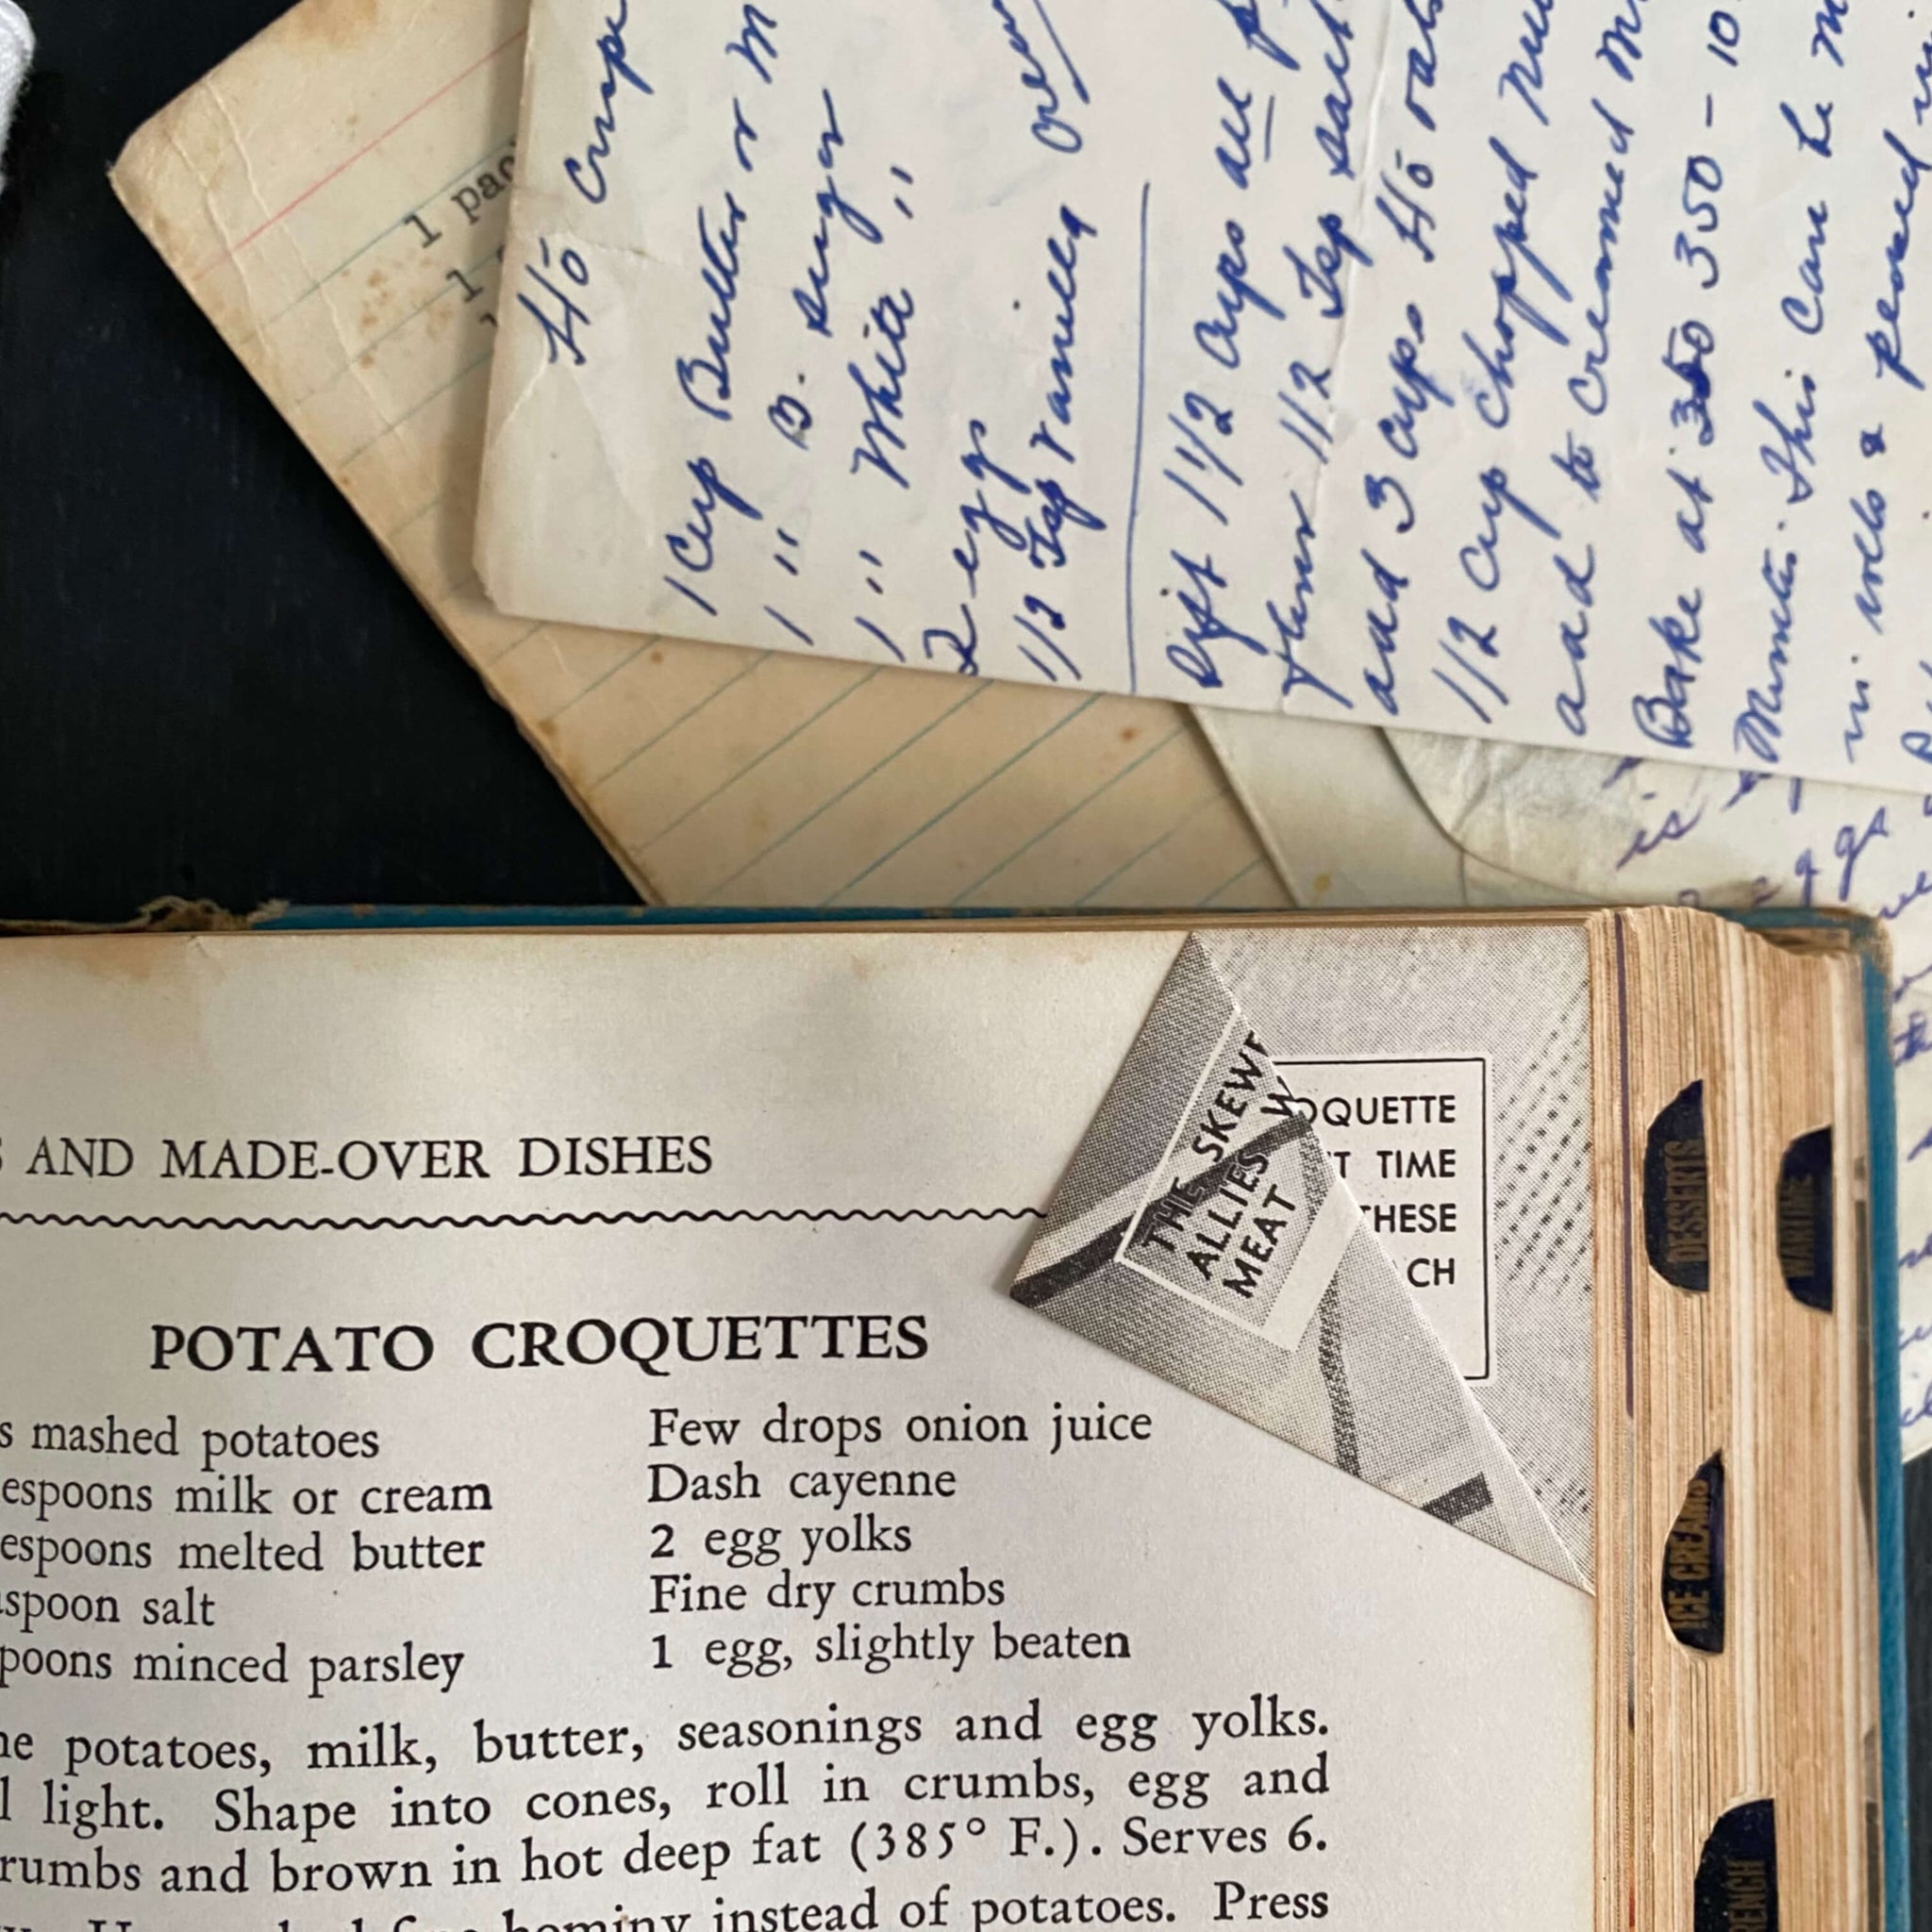 Ho Crispe
1 Cup Butter or M
1 " B. sugar
1 " White "
2 eggs
1/2 Tsp Vanilla over
Sift 1 1/2 Cups all p
flour 1/2 Tsp salt
add 3 Cups Ho oats
1/2 Cup Chopped Nu
add to Creamed M
Bake at 350 - 10
Minutes. This Can be m
in rolls &
1 pac
1
is
AND MADE-OVER DISHES
POTATO CROQUETTES
s mashed potatoes
espoons milk or cream
espoons melted butter
spoon salt
poons minced parsley
Few drops onion juice
Dash cayenne
2 egg yolks
Fine dry crumbs
1 egg, slightly beaten
ne potatoes, milk, butter, seasonings and egg yolks.
l light. Shape into cones, roll in crumbs, egg and
rumbs and brown in hot deep fat (385° F.). Serves 6.
hominy instead of potatoes. Press
THE SKEWE
ALLIES W
MEAT
OQUETTE
T TIME
THESE
CH
DESSERTS
WARTIME
ICE CREAMS
ENCH